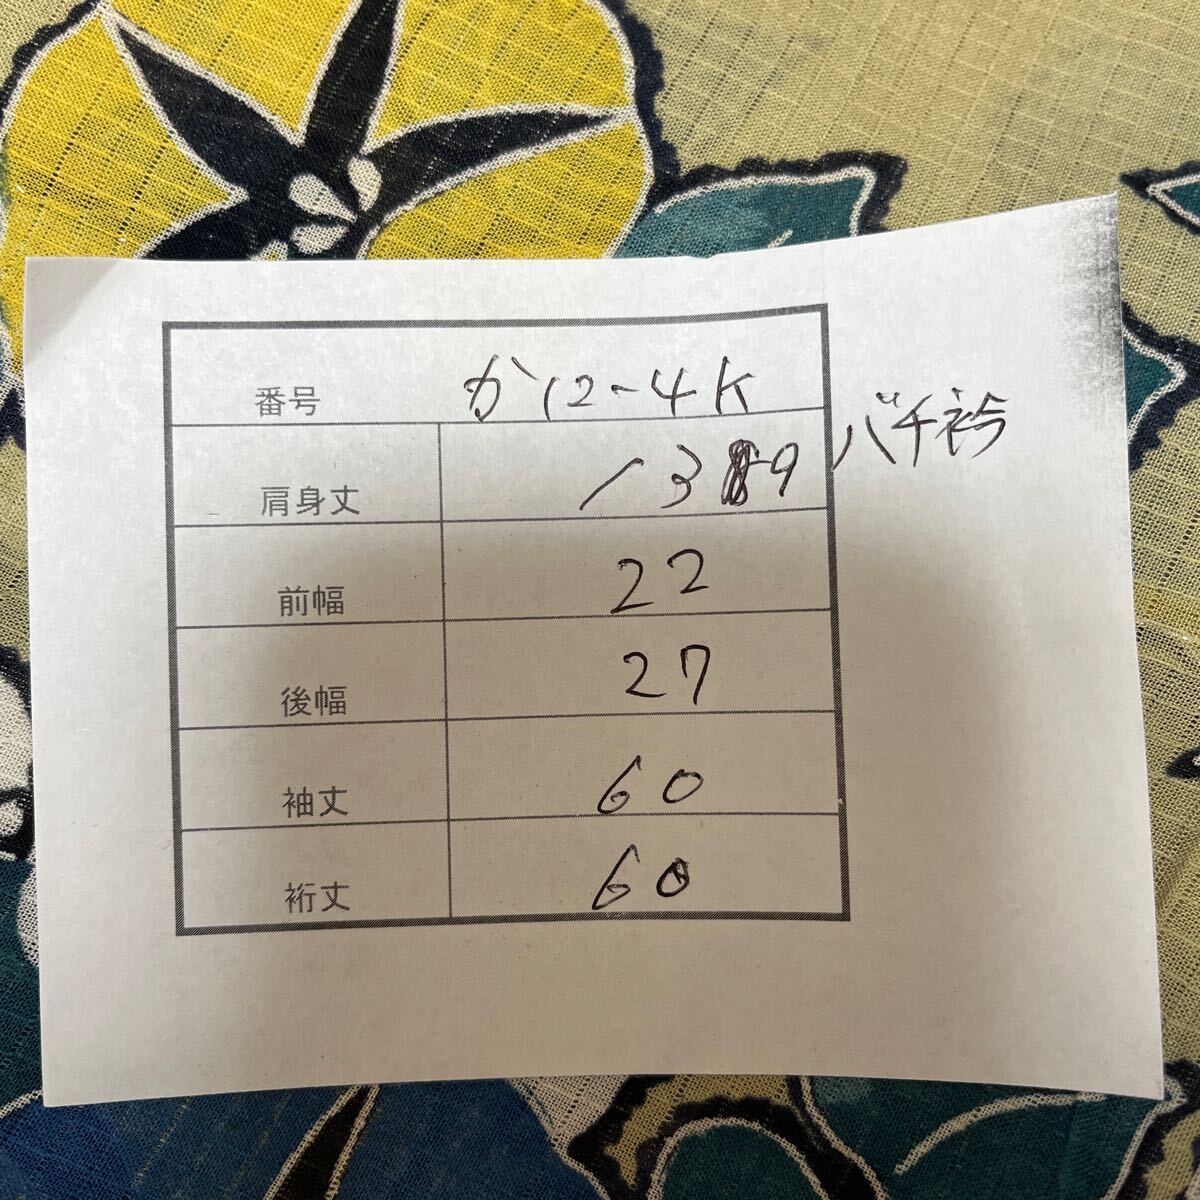 番号 か12-4K
肩身丈 139 バチ衿
前幅 22
後幅 27
袖丈 60
裄丈 60